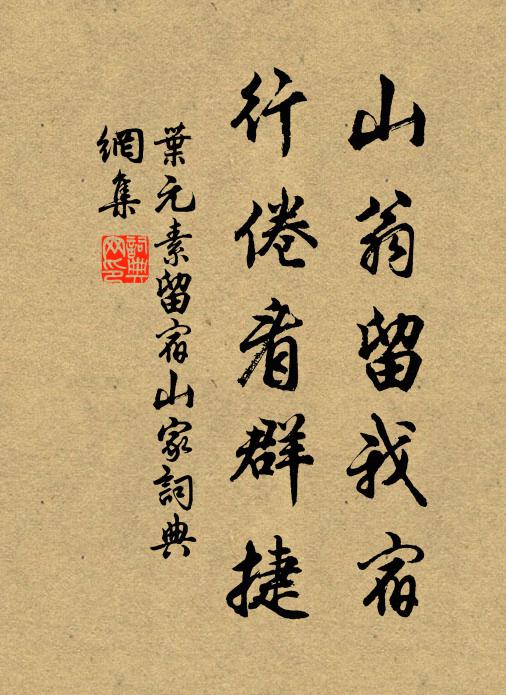 山翁留我宿
行倦看群捷
葉元素留宿山家詞典
網集
詞典網印